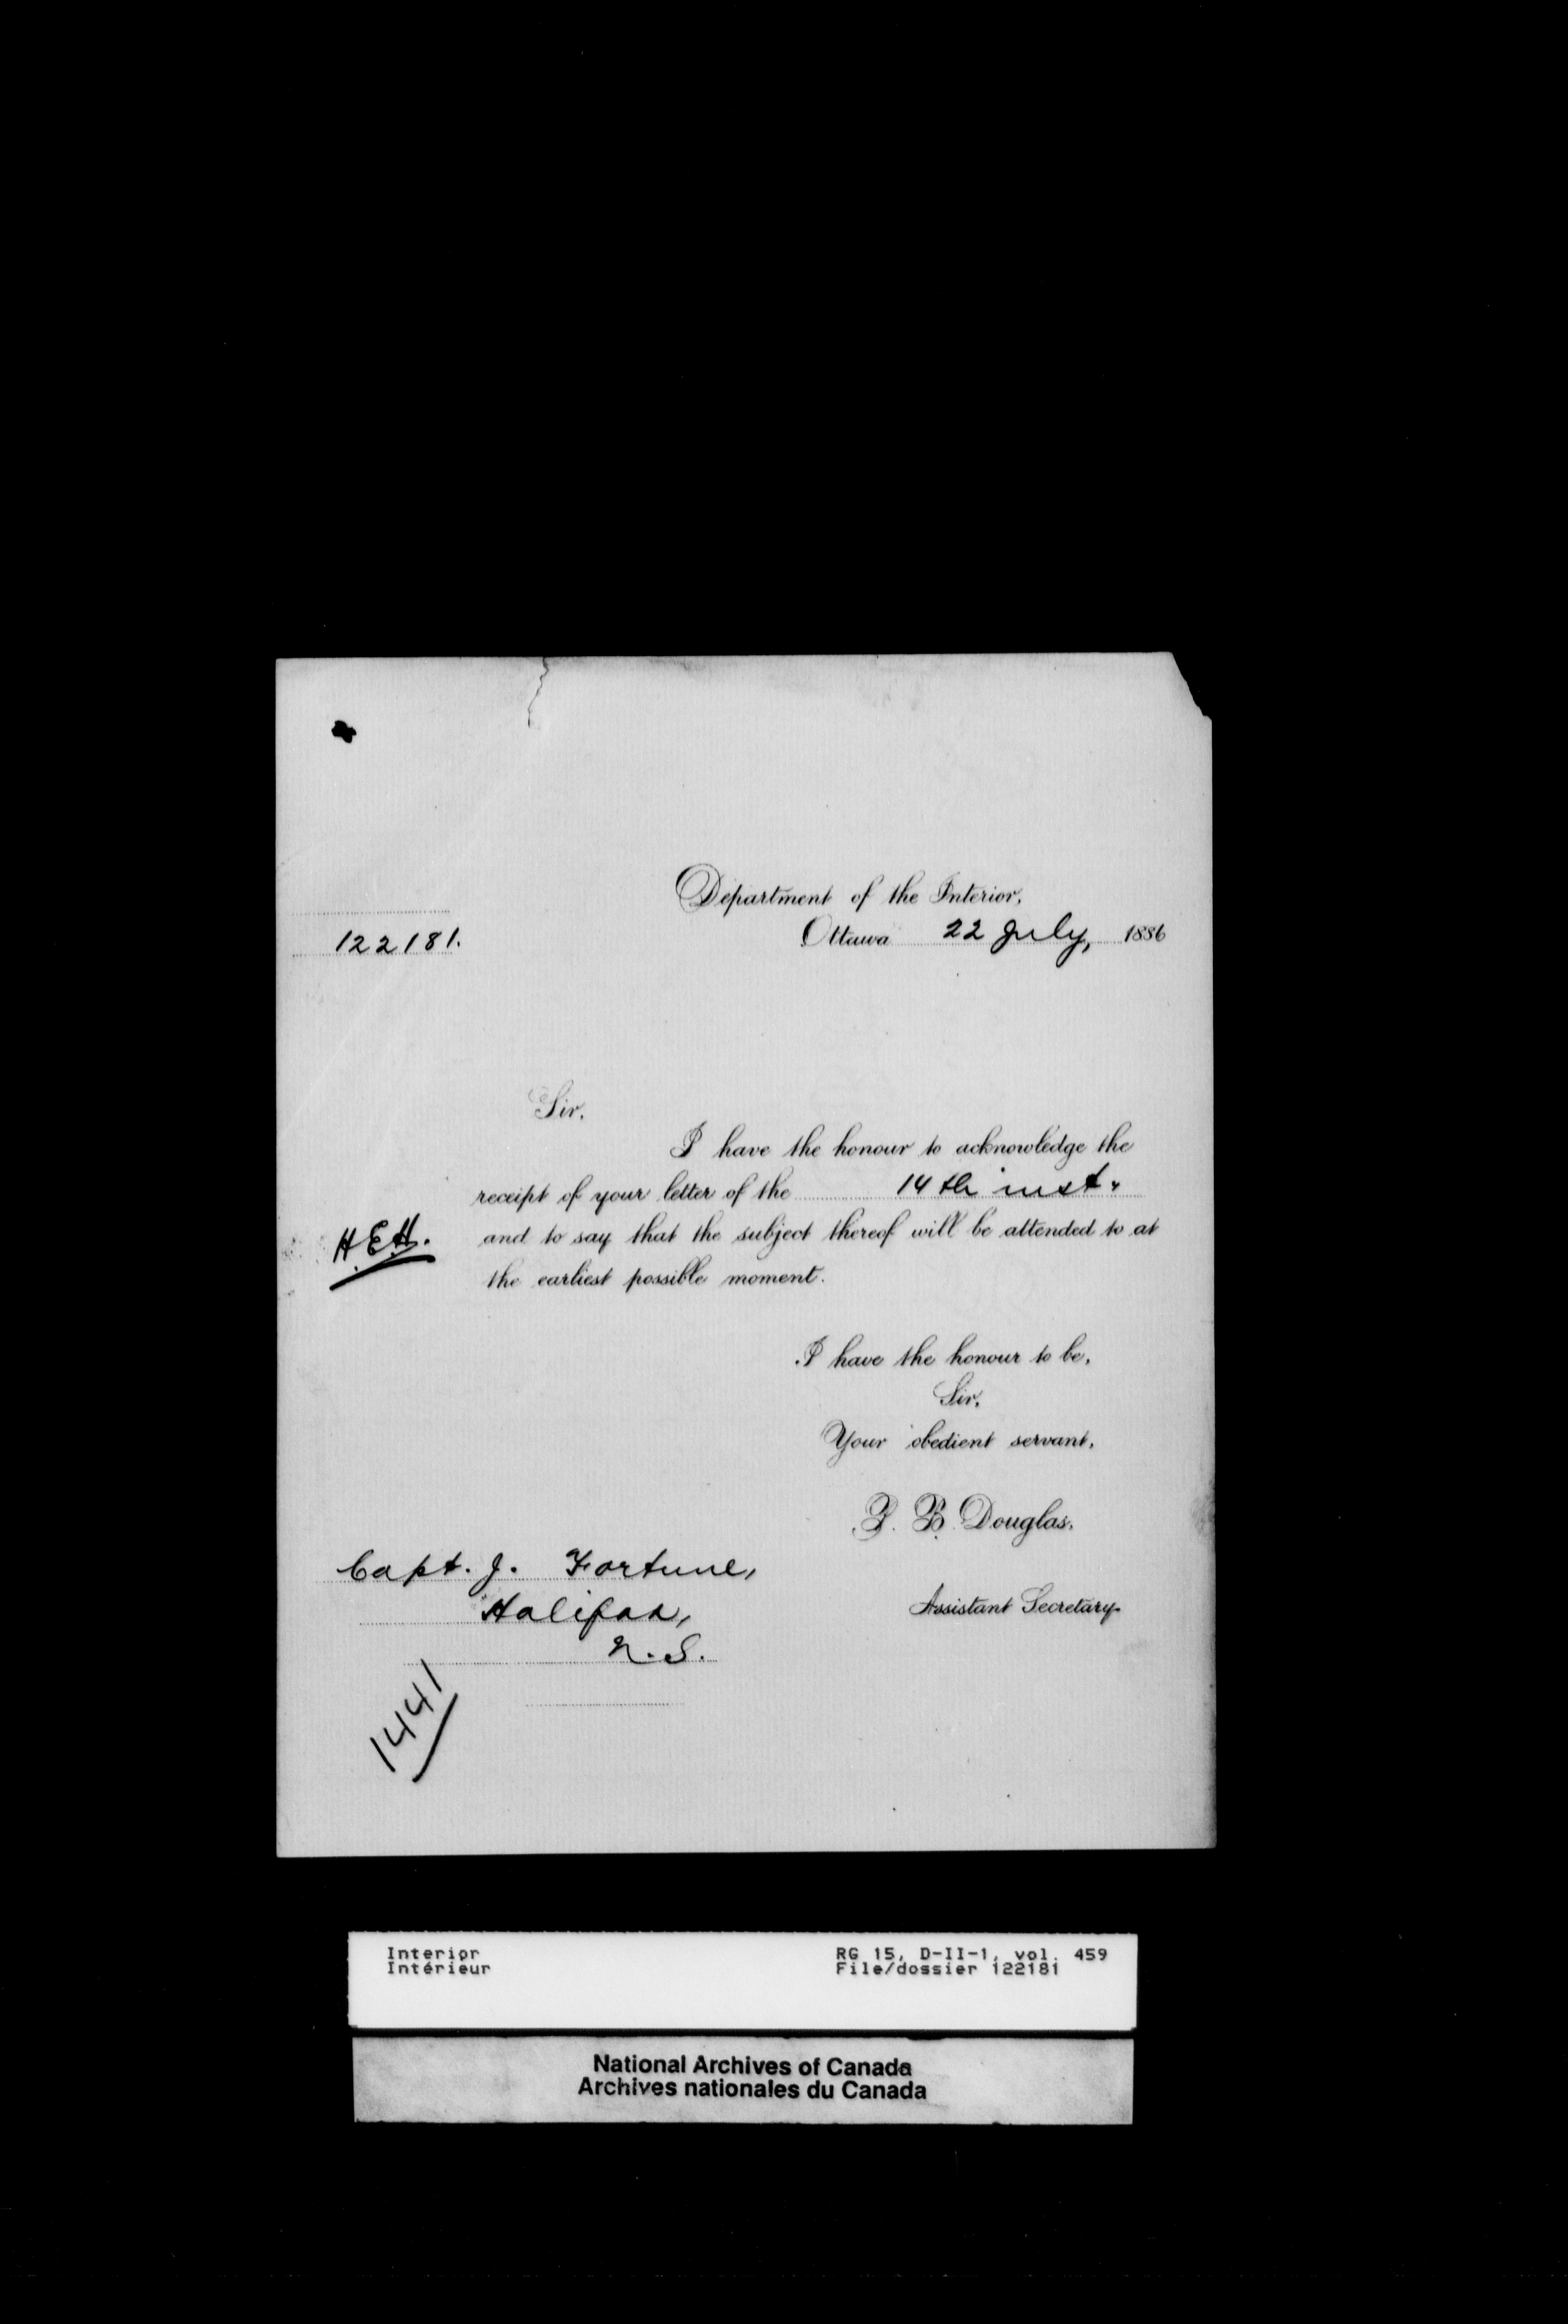 Department of the Interior,
122181.
Ottawa 22 July, 1886
Sir,
I have the honour to acknowledge the
receipt of your letter of the 14th inst.
H.E.H.
and to say that the subject thereof will be attended to at
the earliest possible moment.
I have the honour to be,
Sir,
Your obedient servant,
P. B. Douglas,
Assistant Secretary
Capt. J. Fortune,
Halifax,
N.S.
1441
Interior
Intérieur
RG 15, D-II-1, vol. 459
File/dossier 122181
National Archives of Canada
Archives nationales du Canada